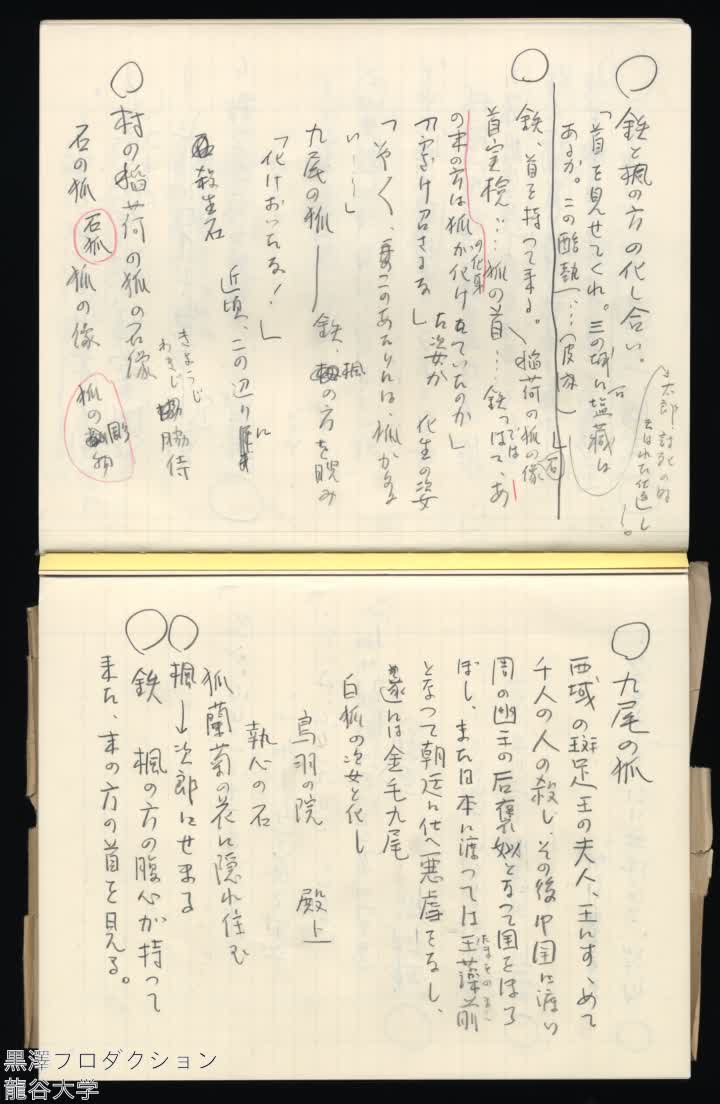 鉄と楓の方の化し合い。
「首を見せてくれ。三の城に塩蔵に
あるか。この酷熱、…（皮肉）」
太郎討死のぬ
鉄、首を持って来る。
稲荷の狐の像
石
首実検…狐の首…鉄っぽて、あ
では
の末の方は狐が化けていたのか」
の化身
ふざけ召さるな」
化生の姿
「いやく、このあたりには、狐が
い…」
九尾の狐――鉄、楓の方を睨み
「化けおったな！」
殺生石
近頃、この辺りに
きょうじ
わきじ
脇侍
村の稲荷の狐の石像
石の狐 石狐 狐の像
狐の彫物
九尾の狐
西域の斑足王の夫人、王にすゝめて
千人の人の殺し、その後中国に渡い
周の幽王の后褒姒となって国をほろ
ぼし、または本に渡っては玉藻前
たまものまへ
となって朝廷に仕へ悪虐をなし、
遂には金毛九尾
白狐の姿と化し
鳥羽の院 殿上
執心の石
狐蘭菊の花に隠れ住む
楓→次郎にせまる
鉄 楓の方の腹心が持って
来た、末の方の首を見る。
黒澤プロダクション
龍谷大学